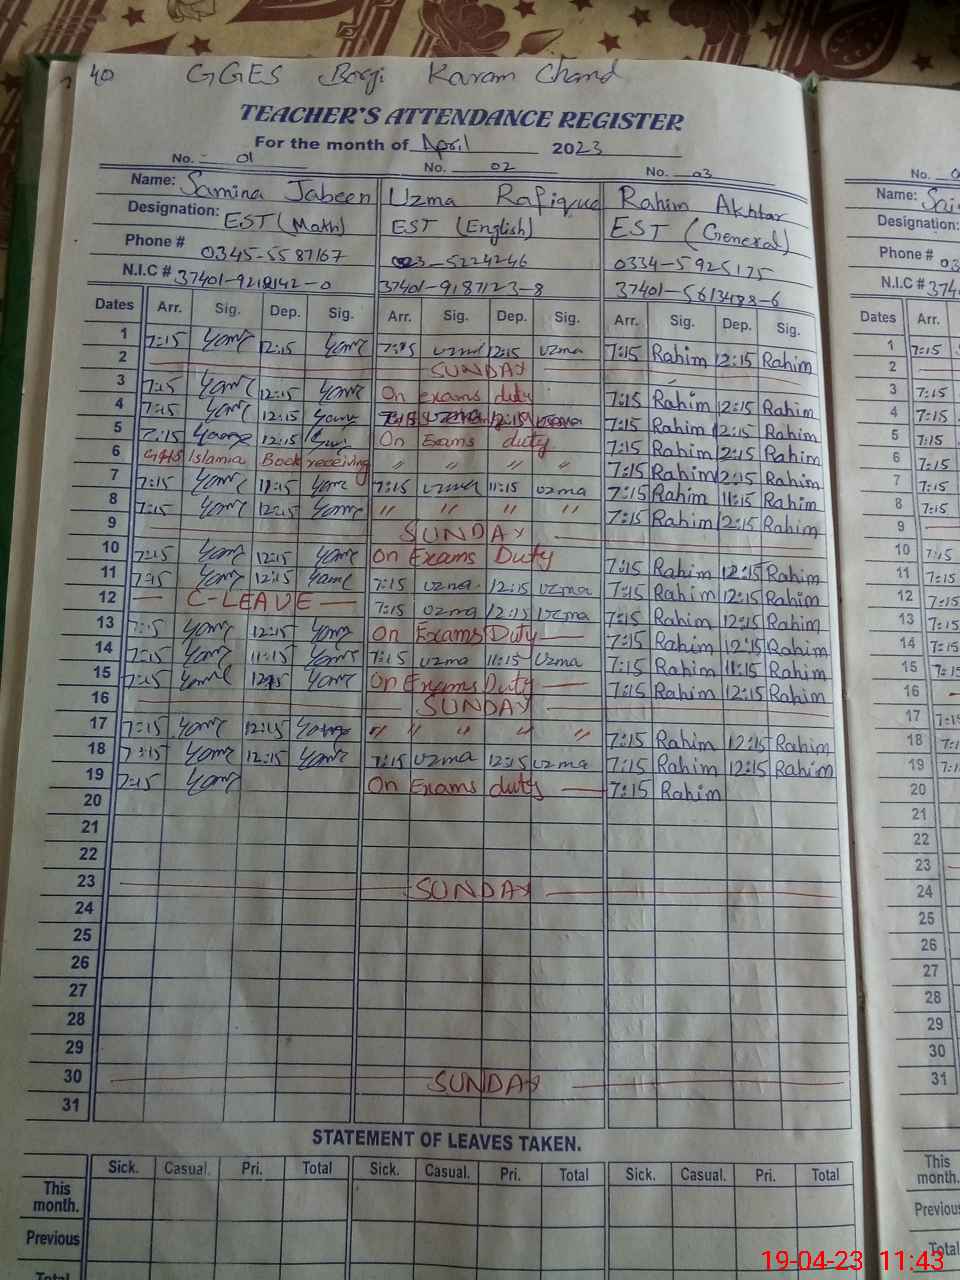 40 GGES Borgi Karam Chand
TEACHER'S ATTENDANCE REGISTER
For the month of April 2023
No. 01 No. 02 No. 03
Name: Samina Jabeen Uzma Rafique Rahim Akhtar Name:
Designation: EST (Math) EST (English) EST (General) Designation:
Phone # 0345-5587167 -5224246 0334-5925175 Phone # 03
N.I.C # 37401-9218142-0 37401-9187123-8 37401-5613488-6 N.I.C # 374
Dates Arr. Sig. Dep. Sig. Arr. Sig. Dep. Sig. Arr. Sig. Dep. Sig. Dates Arr.
1 7:15 12:15 7:15 uzma 12:15 uzma 7:15 Rahim 12:15 Rahim 1 7:15
2 SUNDAY 2
3 7:15 12:15 On exams duty 7:15 Rahim 12:15 Rahim 3 7:15
4 7:15 12:15 7:15 uzma 12:15 uzma 7:15 Rahim 12:15 Rahim 4 7:15
5 7:15 12:15 On Exams duty 7:15 Rahim 12:15 Rahim 5 7:15
6 GHS Islamia Book receiving " " " " 7:15 Rahim 12:15 Rahim 6 7:15
7 7:15 11:15 7:15 uzma 11:15 uzma 7:15 Rahim 11:15 Rahim 7 7:15
8 7:15 12:15 " " " " 7:15 Rahim 12:15 Rahim 8 7:15
9 SUNDAY 9
10 7:15 12:15 On Exams Duty 7:15 Rahim 12:15 Rahim 10 7:15
11 7:15 12:15 7:15 uzma 12:15 uzma 7:15 Rahim 12:15 Rahim 11 7:15
12 C-LEAVE 7:15 uzma 12:15 uzma 7:15 Rahim 12:15 Rahim 12 7:15
13 7:15 12:15 On Exams Duty 7:15 Rahim 12:15 Rahim 13 7:15
14 7:15 11:15 7:15 uzma 11:15 uzma 7:15 Rahim 11:15 Rahim 14 7:15
15 7:15 12:15 On Exams Duty 7:15 Rahim 12:15 Rahim 15 7:15
16 SUNDAY 16
17 7:15 12:15 " " " " 7:15 Rahim 12:15 Rahim 17 7:1
18 7:15 12:15 7:15 uzma 12:15 uzma 7:15 Rahim 12:15 Rahim 18 7:1
19 7:15 On Exams duty 7:15 Rahim 19 7:1
20 20
21 21
22 22
23 SUNDAY 23
24 24
25 25
26 26
27 27
28 28
29 29
30 SUNDAY 30
31 31
STATEMENT OF LEAVES TAKEN.
Sick. Casual. Pri. Total Sick. Casual. Pri. Total Sick. Casual. Pri. Total
This month. This month.
Previous Previous
Total Total
19-04-23 11:43